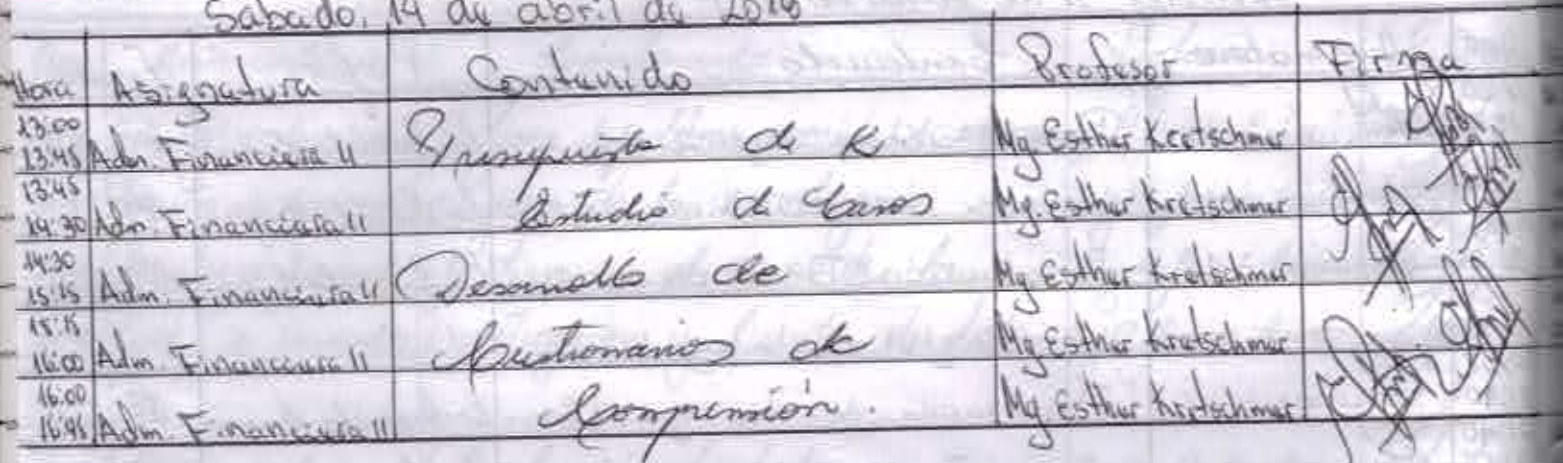 Sabado, 14 de abril de 2018
Hora Asignatura Contenido Profesor Firma
13:00
13:45 Adm. Financiera II Presupuesto de K Mg. Esther Kretschmer
13:45
14:30 Adm. Financiera II Estudio de Casos Mg. Esther Kretschmer
14:30
15:15 Adm. Financiera II Desarrollo de Mg Esther Kretschmer
15:15
16:00 Adm. Financiera II Cuestionarios de Mg Esther Kretschmer
16:00
16:45 Adm. Financiera II Comprensión. Mg Esther Kretschmer